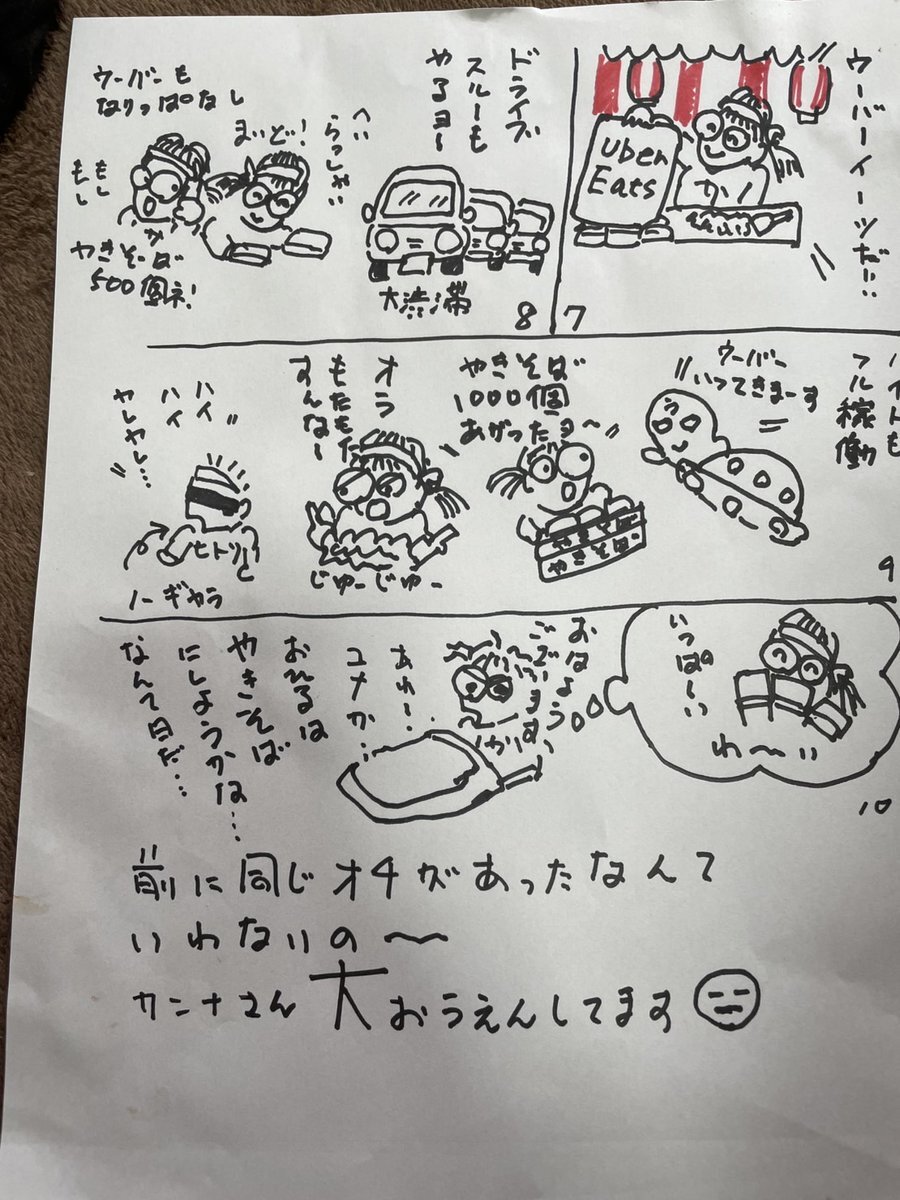 ウーバーイーツだ!!
Uber
Eats
か
7
ドライブ
スルーも
やるヨー
大渋滞
へい
らっしゃい
まいど!
ウーバーも
なりっぱなし
もし
もし
か
やきそば
500個ネ!
8
フル稼働
ウーバー
いってきまーす
やきそば
1000個
あがったヨ〜
やきそば
やきそば
オラ
もたもた
すんなー
じゅーじゅー
ハイ
ハイ
ヤレヤレ…
ヒトリ
ノーギャラ
9
いっぱーい
わ〜い
10
おはよう
ございます
あれ…
ユメか…
おひるは
やきそば
にしようかな…
なんて日だ…
前に同じオチがあったなんて
いわないの〜
カンナさん大おうえんしてます